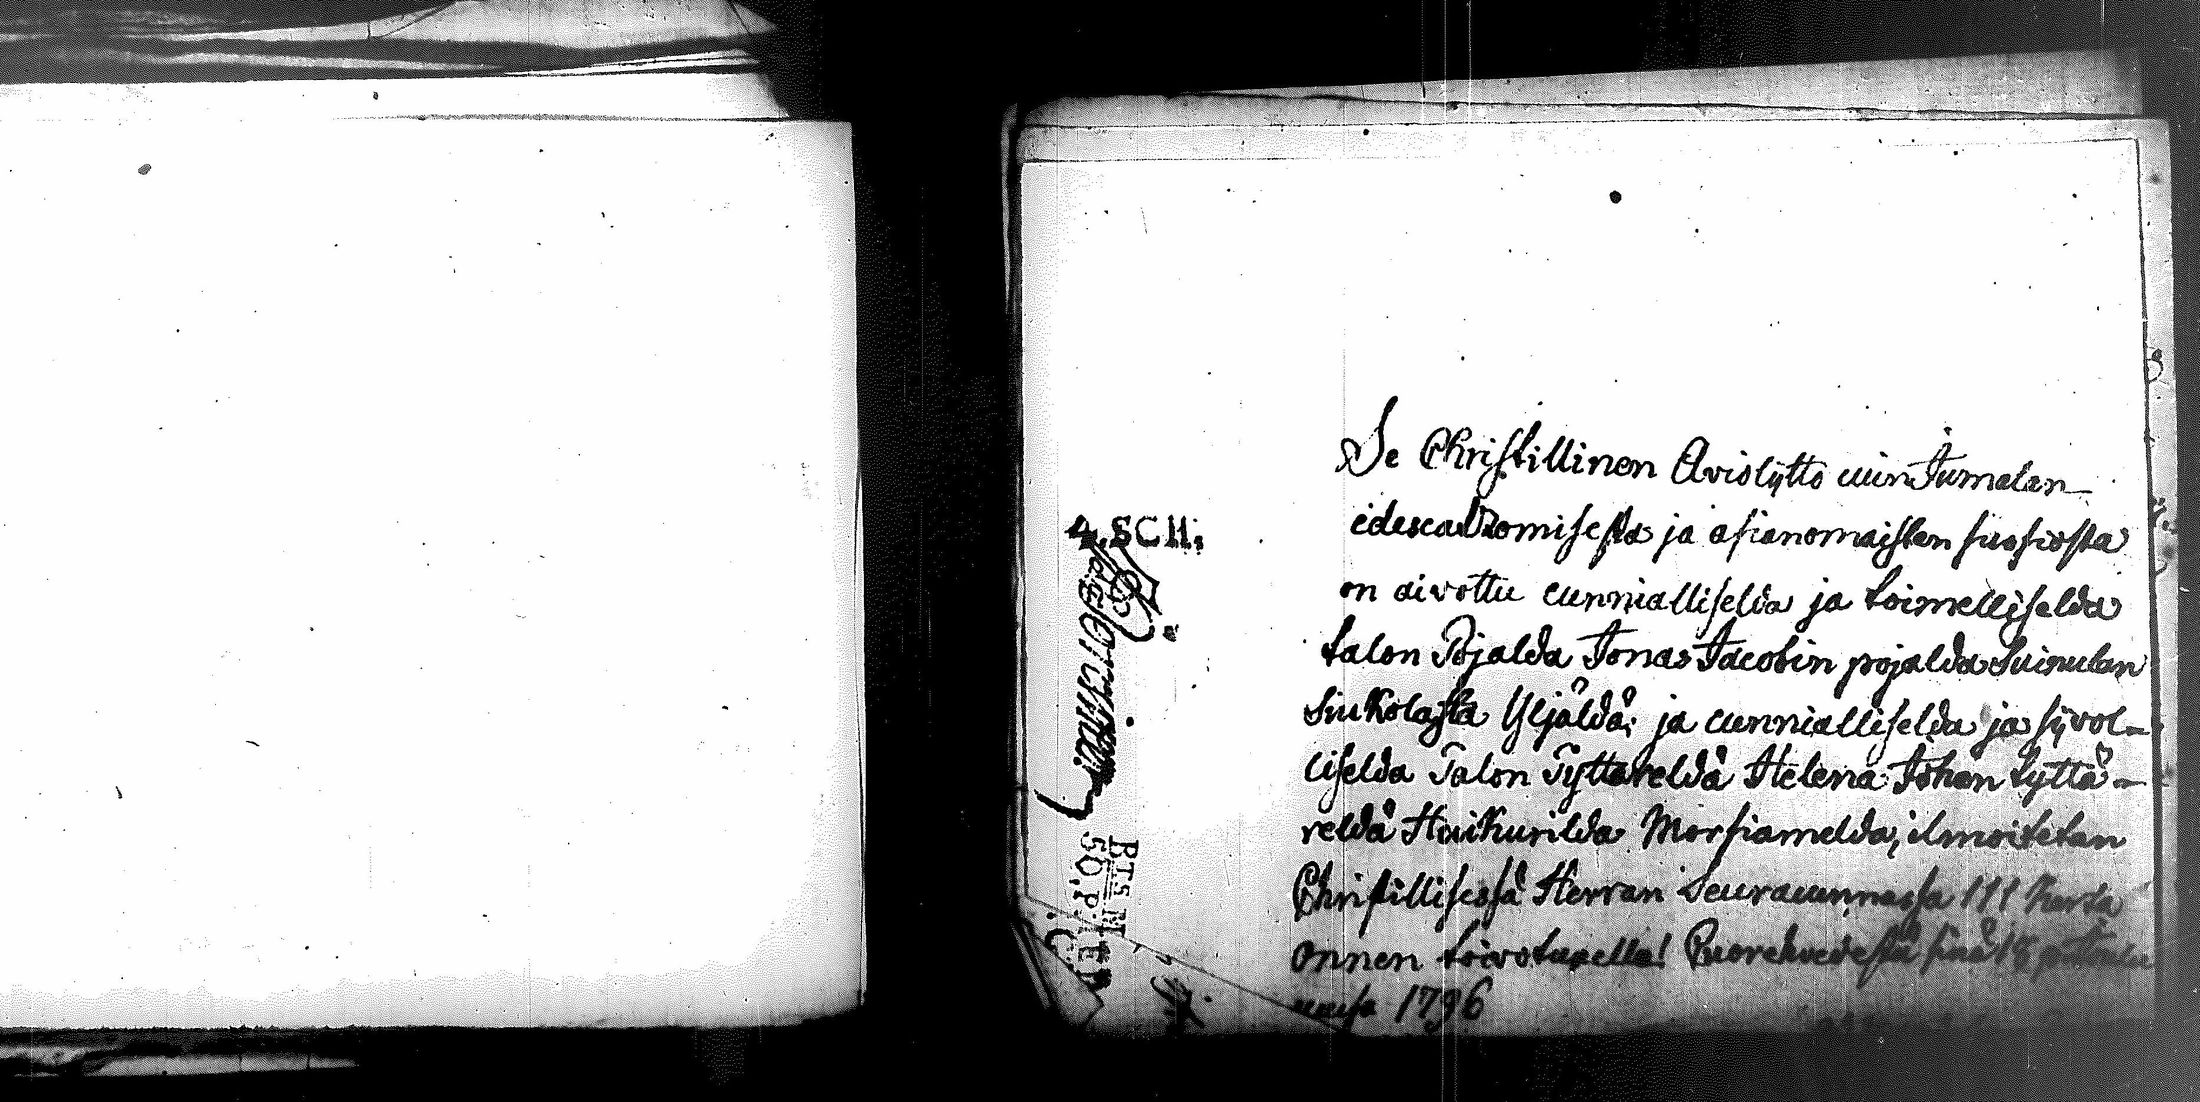 4. SCH.
BTS M
50. P.
Se Christillinen Avioliitto cuin Jumalan
edescadzomisesta ja asianomaisten suosiosta
on aivottu cunnialliselda ja toimelliselda
talon Pojalda Jonas Jacobin pojalda Suinulan
Siukolasta Yljäldä; ja cunnialliselda ja sijvol-
liselda Talon Tyttäreldä Helena Johan tyttä-
reldä Huikurilda Morsiamelda, ilmoitetan
Christillisesä Herran Seuracunnassa III kerta
onnen toivotuxella! Ruorehvedestä sinä 18 p
1796